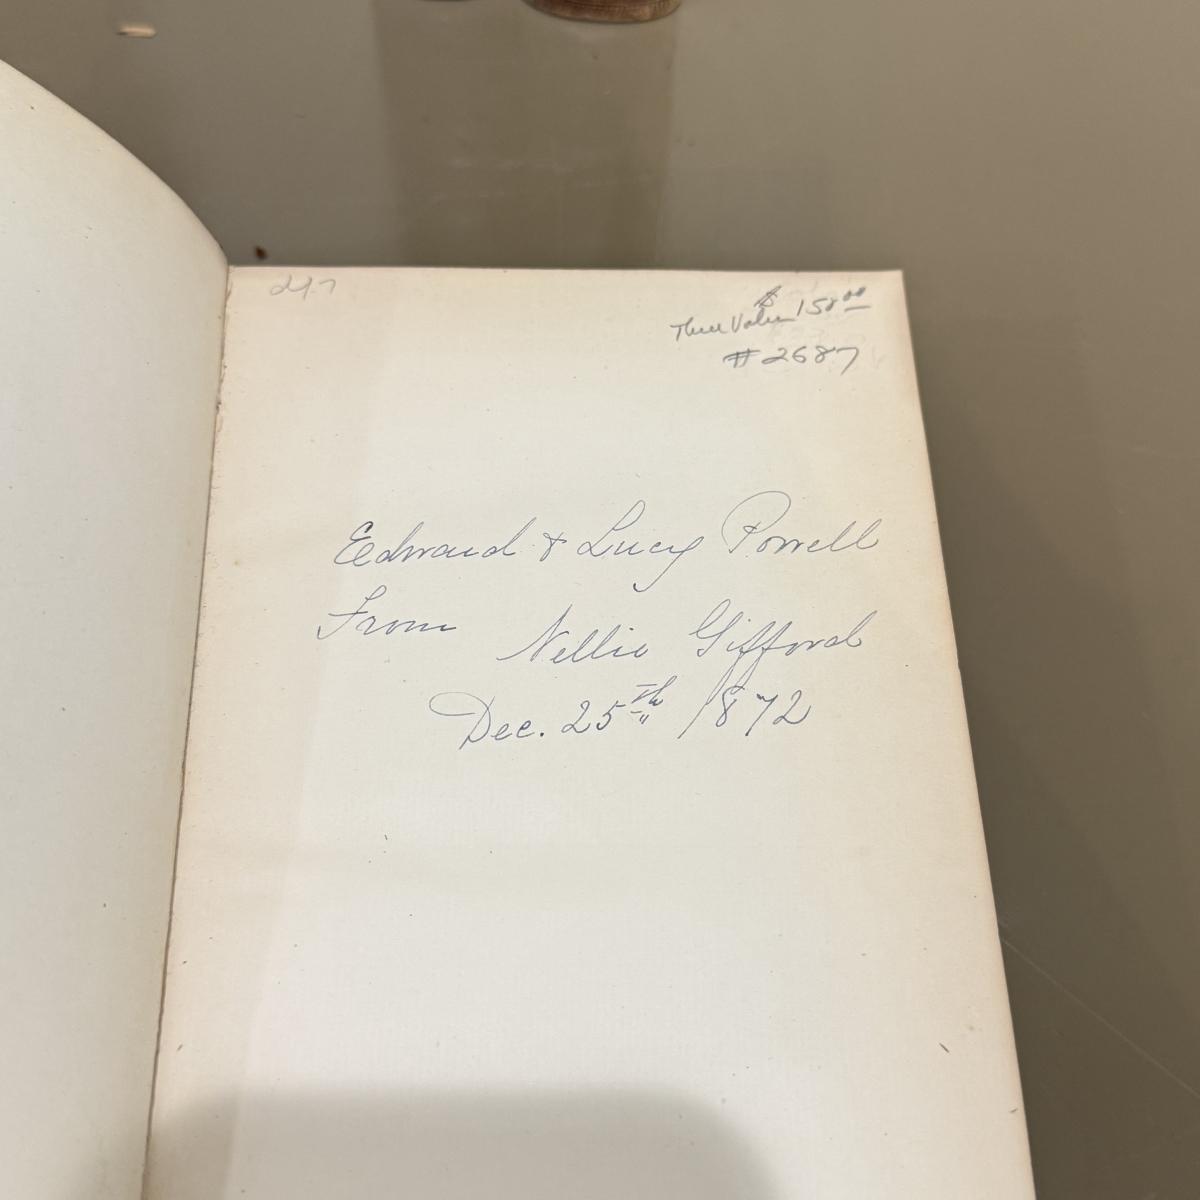 247
Three Vols $158.00
#2687
Edward & Lucy Powell
From
Nellie Gifford
Dec. 25th 1872